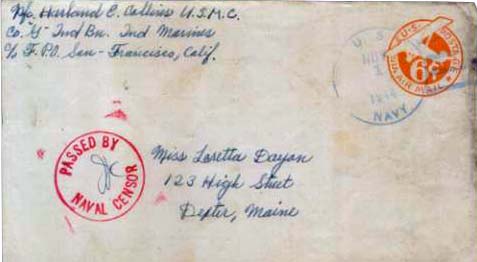 Harland E. Collins U.S.M.C.
Co. G 2nd Bn. 2nd Marines
c/o F.P.O. San-Francisco, Calif.
U.S. POSTAGE
6¢
VIA AIR MAIL
U. S.
NAVY
PASSED BY
NAVAL CENSOR
Miss Loretta Dayon
123 High Street
Dexter, Maine